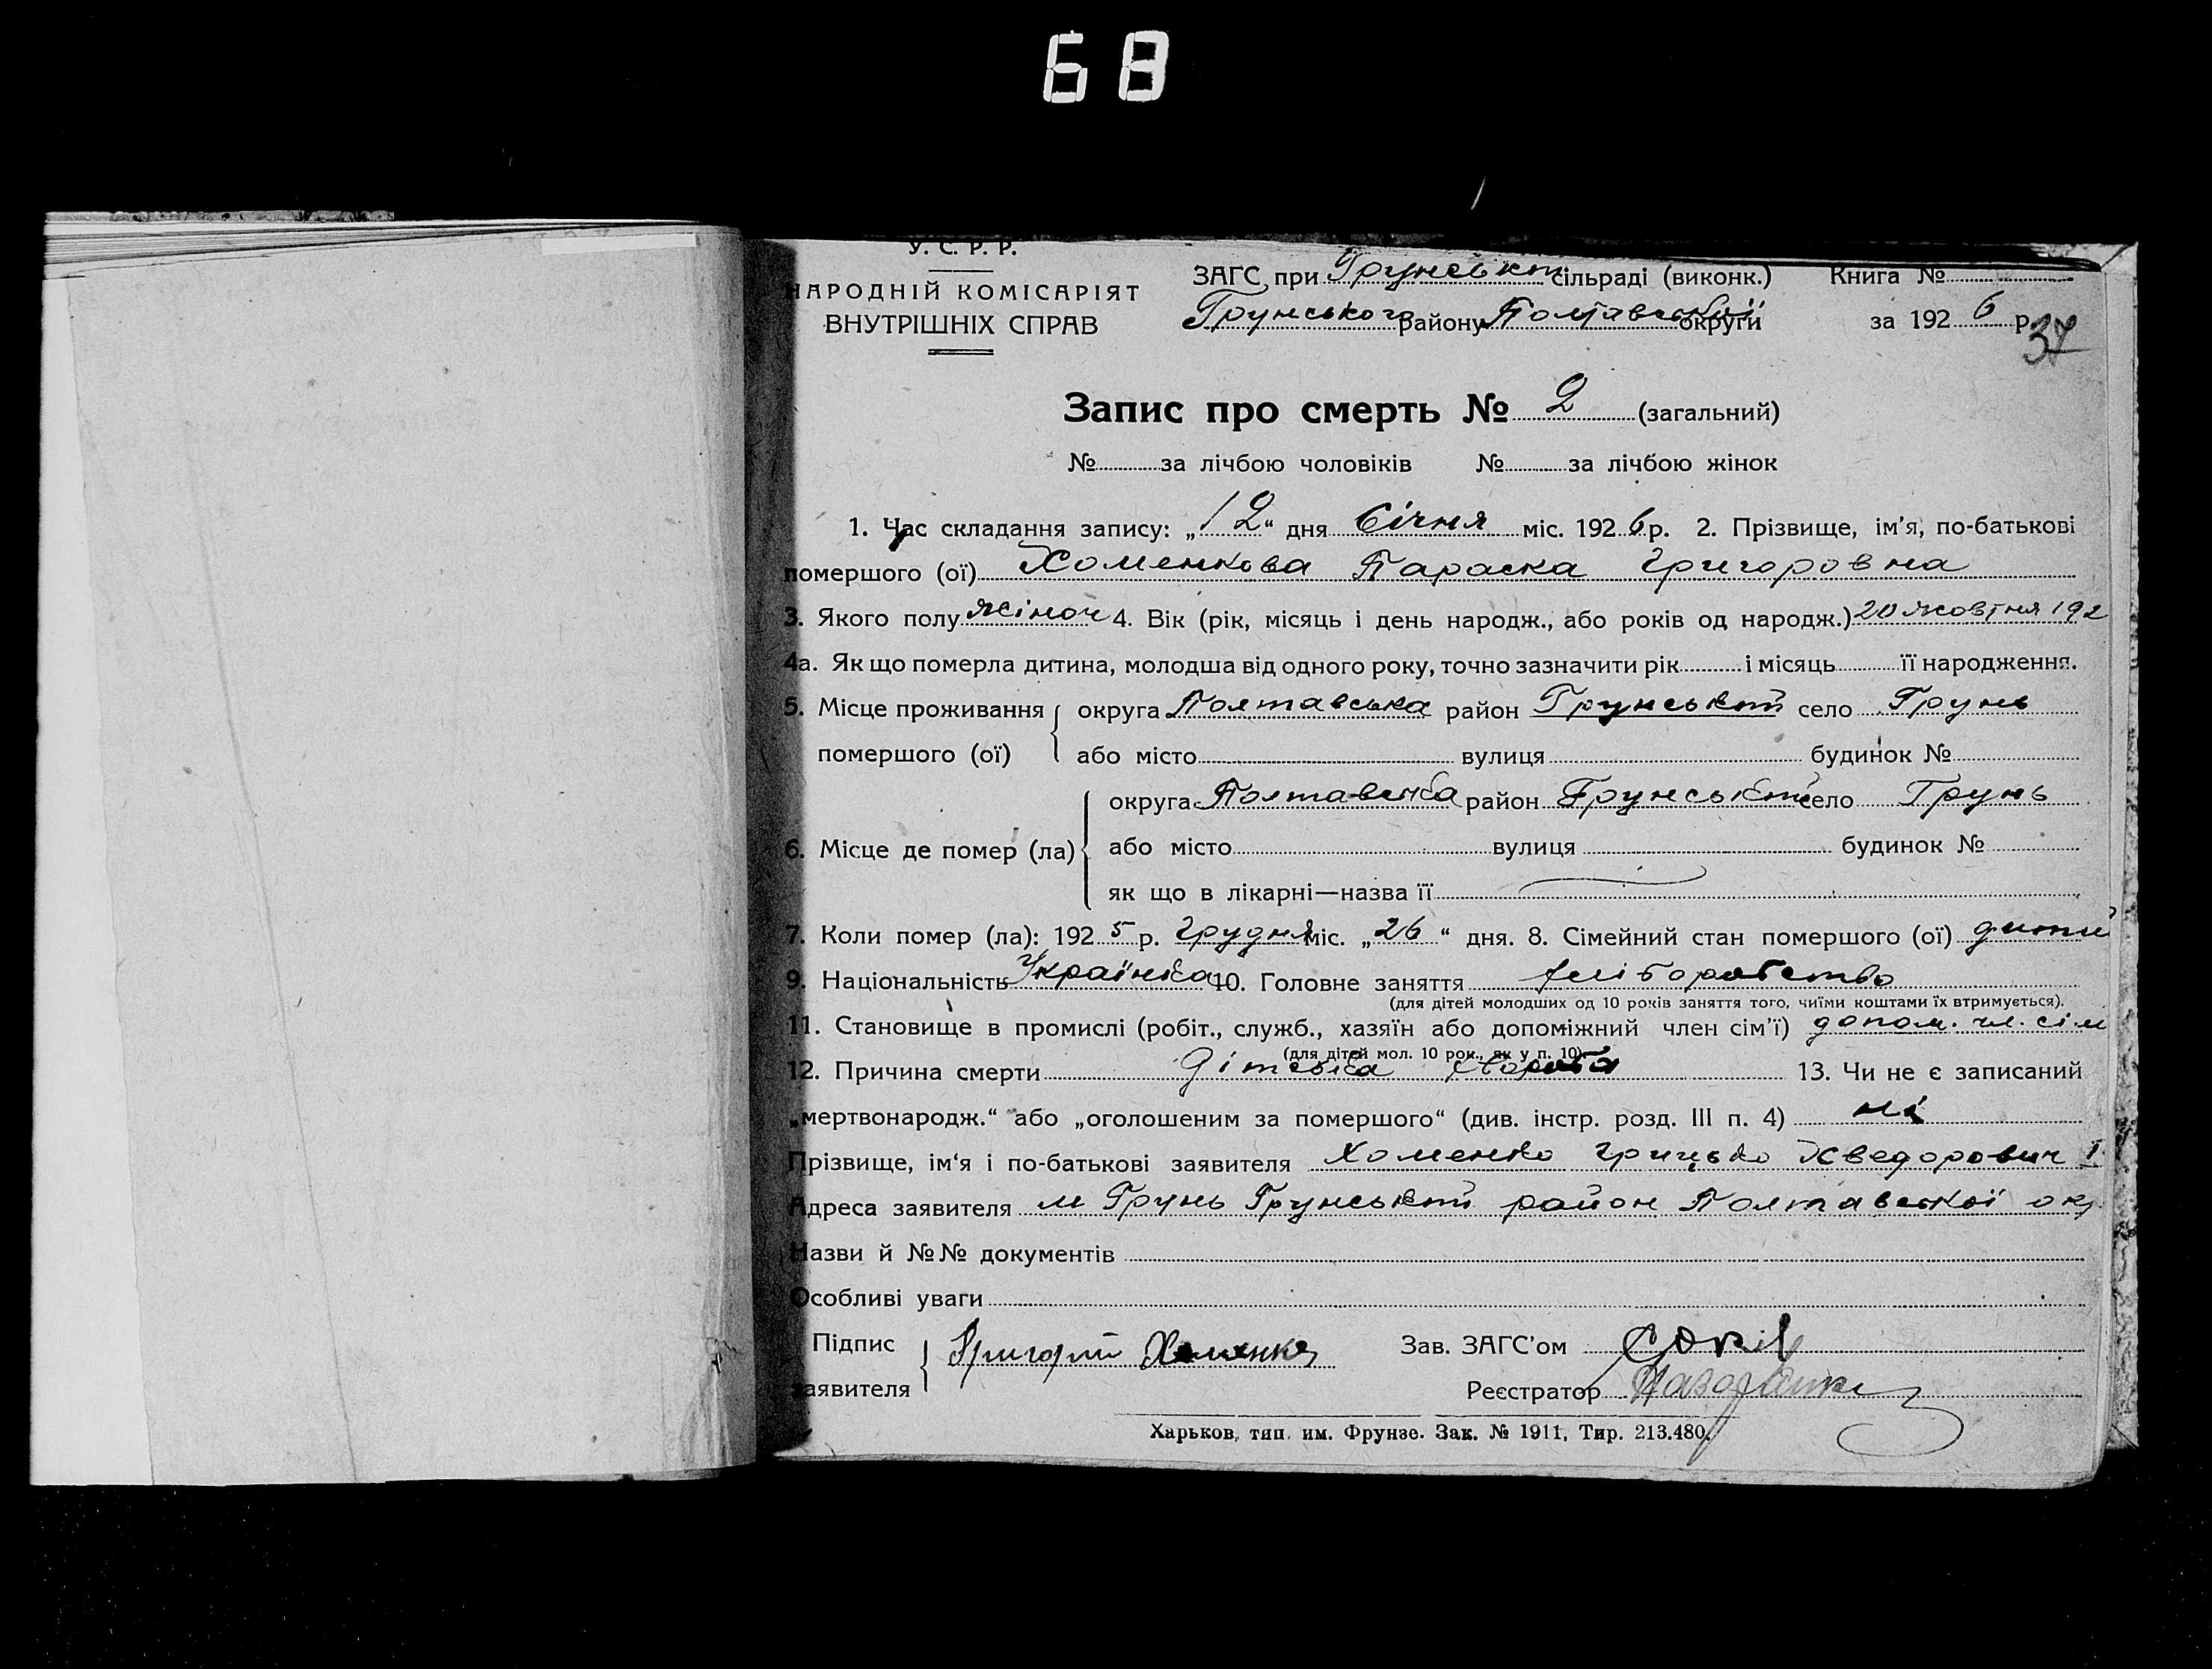 68
У. С. Р. Р.
НАРОДНІЙ КОМІСАРІЯТ
ВНУТРІШНІХ СПРАВ
ЗАГС при Грунській сільраді (виконк.) Книга №
Грунського району Полтавської округи за 1926 р.
37
Запис про смерть № 2 (загальний)
№ за лічбою чоловіків № за лічбою жінок
1. Час складання запису: „12“ дня Січня міс. 1926 р. 2. Прізвище, ім’я, по-батькові
помершого (ої) Хоменкова Параска Григоровна
3. Якого полу жіноч 4. Вік (рік, місяць і день народж., або років од народж.) 20 жовтня 192
4а. Як що померла дитина, молодша від одного року, точно зазначити рік і місяць її народження.
5. Місце проживання округа Полтавська район Грунський село Грунь
помершого (ої) або місто вулиця будинок №
округа Полтавська район Грунський село Грунь
6. Місце де помер (ла) або місто вулиця будинок №
як що в лікарні—назва її
7. Коли помер (ла): 1925 р. Грудня міс. „26“ дня. 8. Сімейний стан помершого (ої) дити
9. Національність Українка 10. Головне заняття хліборобство
(для дітей молодших од 10 років заняття того, чиїми коштами їх втримується).
11. Становище в промислі (робіт., служб., хазяїн або допоміжний член сім’ї) допом. чл. сім
(для дітей мол. 10 рок., як у п. 10)
12. Причина смерти Дітська хвороба 13. Чи не є записаний
„мертвонародж.“ або „оголошеним за помершого“ (див. інстр. розд. III п. 4) ні
Прізвище, ім‘я і по-батькові заявителя Хоменко Грицько Хведорович
Адреса заявителя м Грунь Грунський район Полтавської ок
Назви й №№ документів
Особливі уваги
Підпис Григорій Хоменко Зав. ЗАГС’ом
заявителя Реєстратор
Харьков, тип. им. Фрунзе. Зак. № 1911, Тир. 213.480.